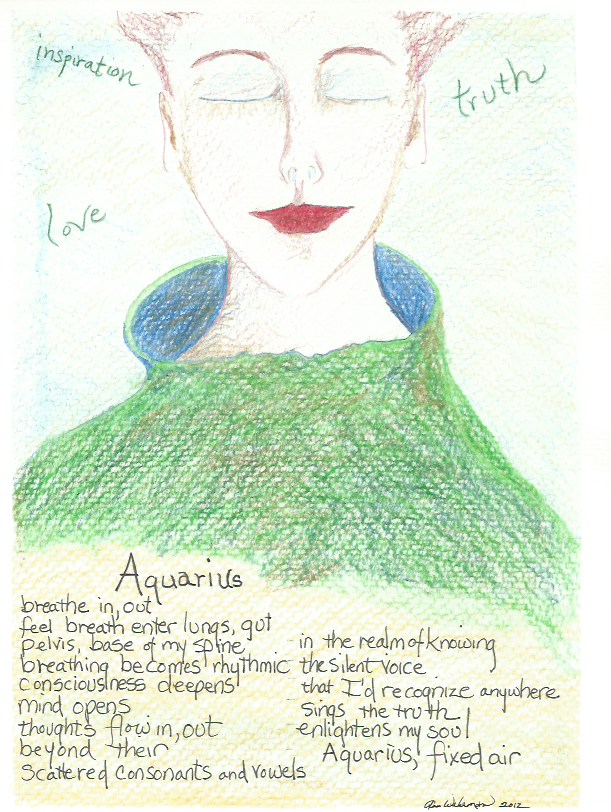 inspiration
truth
love
Aquarius
breathe in, out
feel breath enter lungs, gut
pelvis, base of my spine
breathing becomes rhythmic
consciousness deepens
mind opens
thoughts flow in, out
beyond their
scattered consonants and vowels
in the realm of knowing
the silent voice
that I'd recognize anywhere
sings the truth
enlightens my soul
Aquarius, fixed air
2012